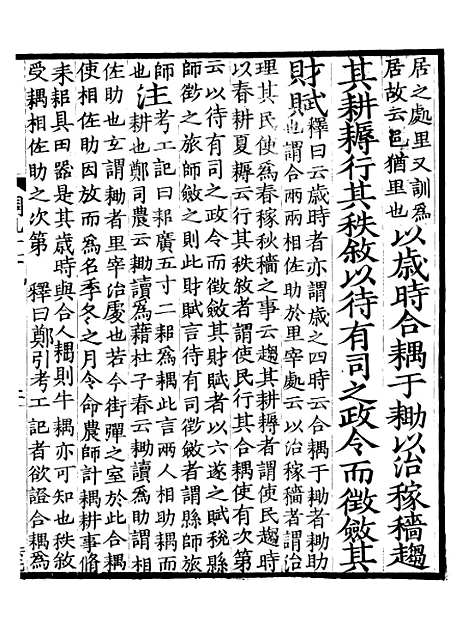 居之處里又訓爲
居故云邑猶里也
以歲時合耦于耡以治稼穡趨
其耕耨行其秩敘以待有司之政令而徵斂其
財賦
釋曰云歲時者亦謂歲之四時云合耦于耡者耡助
也謂合兩兩相佐助於里宰處云以治稼穡者謂治
理其民使爲春稼秋穡之事云趨其耕耨者謂使民趨時
以春耕夏耨云行其秩敘者謂使民行其合耦使有次第
云以待有司之政令而徵斂其財賦者以六遂之賦稅縣
師徵之旅師斂之此財賦言待有司徵斂者謂縣師旅
師也
注
考工記曰耜廣五寸二耜爲耦此言兩人相助耦而
耕也鄭司農云耡讀爲藉杜子春云耡讀爲助謂相
佐助也玄謂耡者里宰治處也若今街彈之室於此合耦
使相佐助因放而爲名季冬之月令命農師計耦耕事脩
耒耜具田器是其歲時與合人耦則牛耦亦可知也秩敘
受耦相佐助之次第 釋曰鄭引考工記者欲證合耦爲